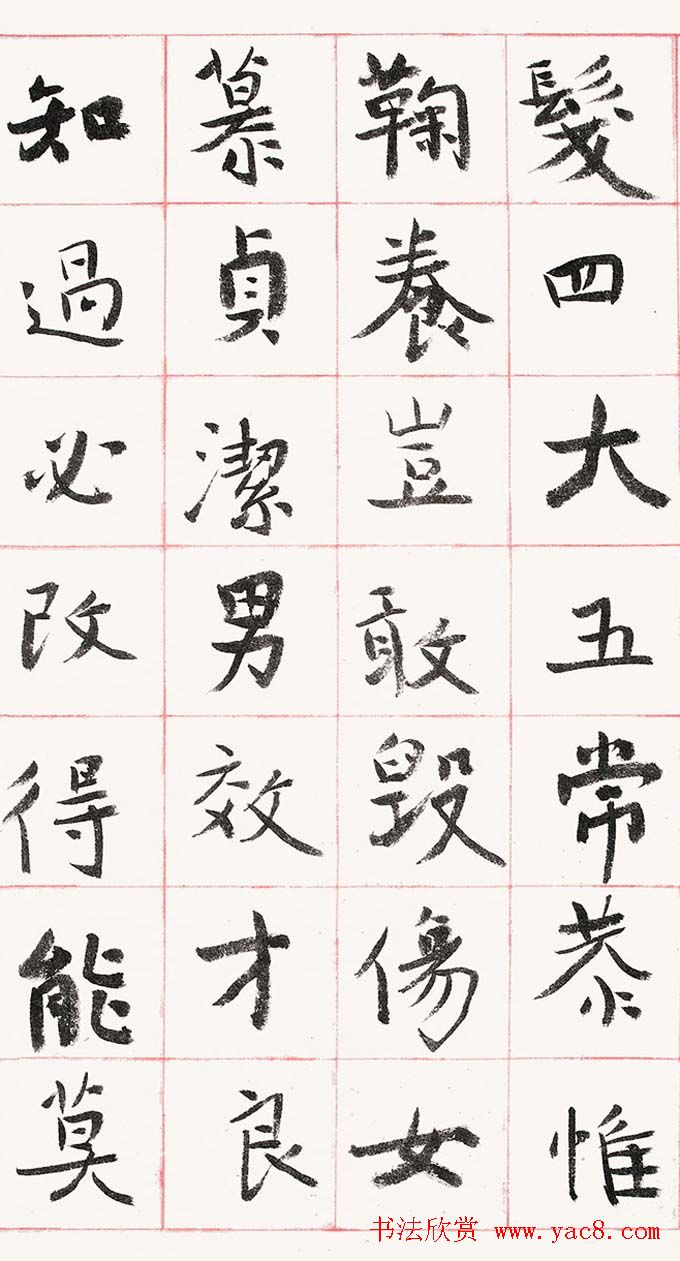 髮四大五常恭惟
鞠養豈敢毀傷女
慕貞潔男效才良
知過必改得能莫
书法欣赏 www.yac8.com